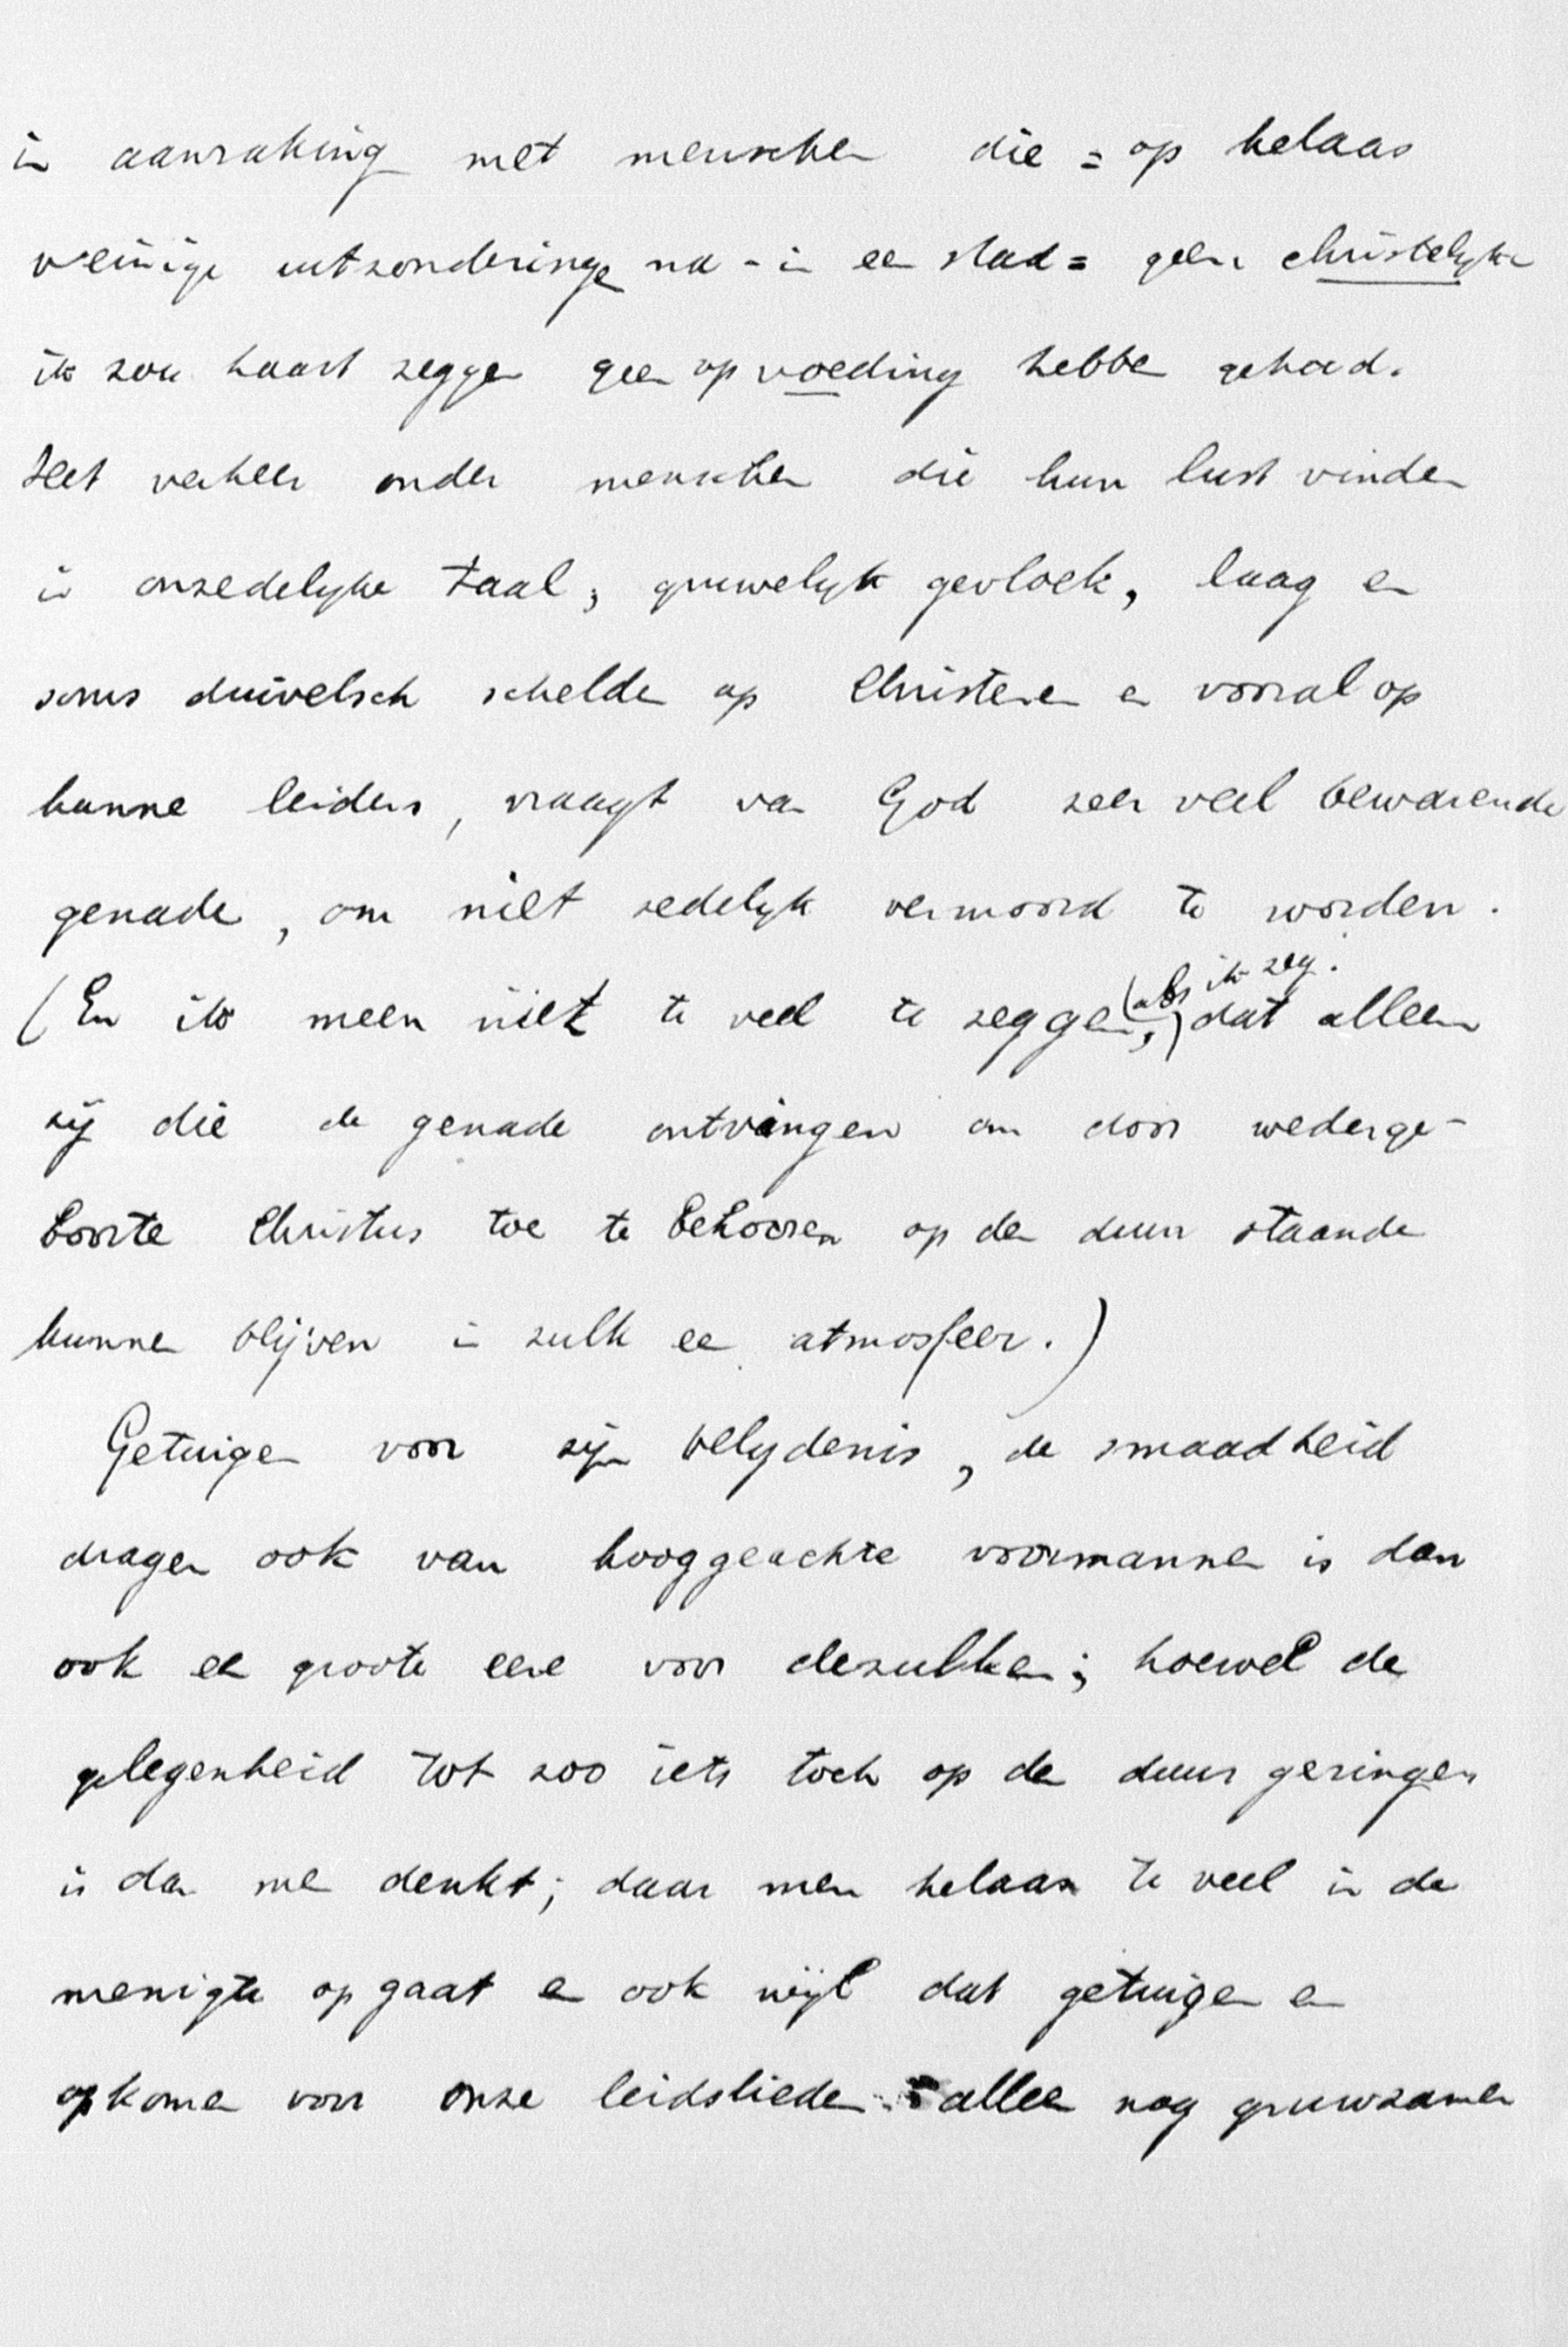 in aanraking met menschen die = op helaas
weinige uitzonderingen na - in een stad = geen christelyke
ik zou haast zeggen geen opvoeding hebben gehad.
Het verkeer onder menschen die hun lust vinden
in onzedelyke taal, gruwelyk gevloek, laag en
soms duivelsch schelden op Christenen en vooral op
hunne leiders, vraagt van God zeer veel bewarende
genade, om niet zedelyk vermoord te worden.
(En ik meen niet te veel te zeggen, (als ik zeg.) dat alleen
zij die de genade ontvingen om door wederge-
boorte Christus toe te behooren op den duur staande
kunnen blijven in zulk een atmosfeer.)
Getuigen voor zijn belydenis, de smaadheid
dragen ook van hooggeachte voormannen is dan
ook een groote eere voor dezulken; hoewel de
gelegenheid tot zoo iets toch op de duur geringer
is dan men denkt; daar men helaas te veel in de
menigte op gaat en ook wijl dat getuigen en
opkomen voor onze leidslieden alleen nog gruwzamer